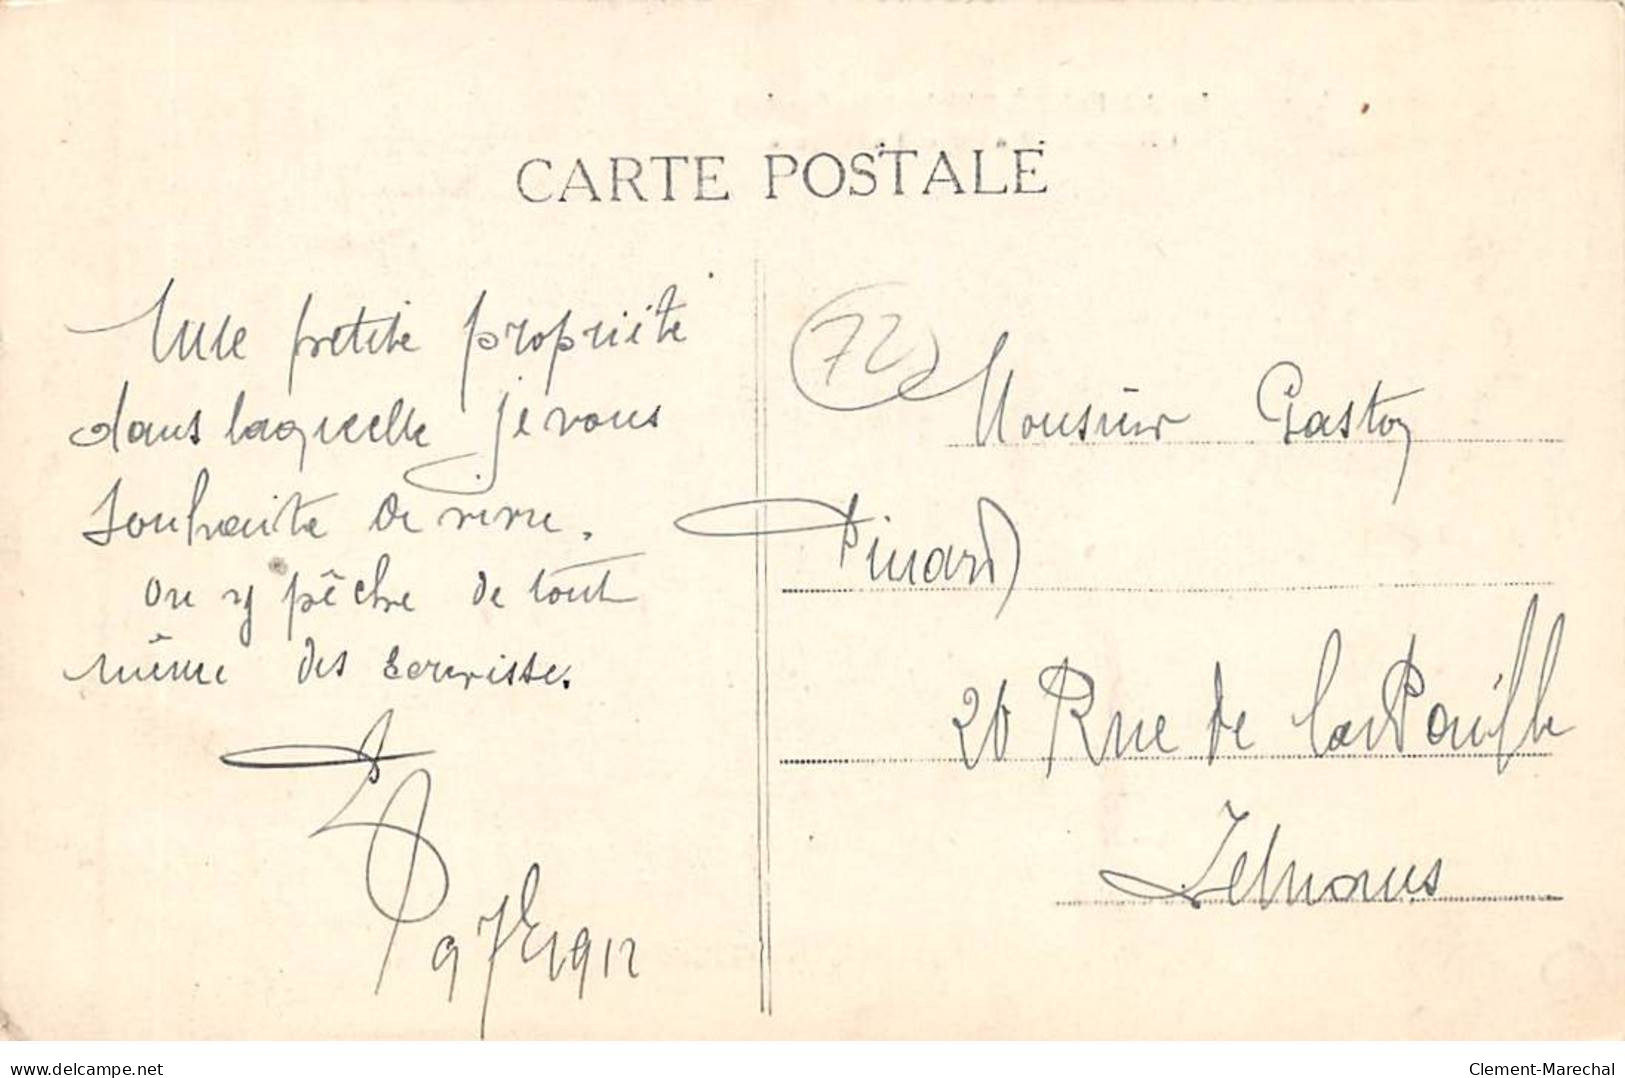 CARTE POSTALE
Une petite propriété
dans laquelle je vous
souhaite de vivre.
on y pêche de tout
même des écrevisses.
9 7bre 1912
72
Monsieur Gaston
Pinard
26 Rue de la Paille
Le Mans
delcampe.net
Clement-Marechal